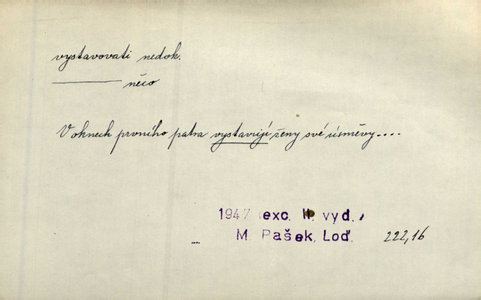 vystavovati nedok.
——— něco
V oknech prvního patra vystavují ženy své úsměvy....
1947 exc. II. vyd.
M. Pašek, Loď. 222,16